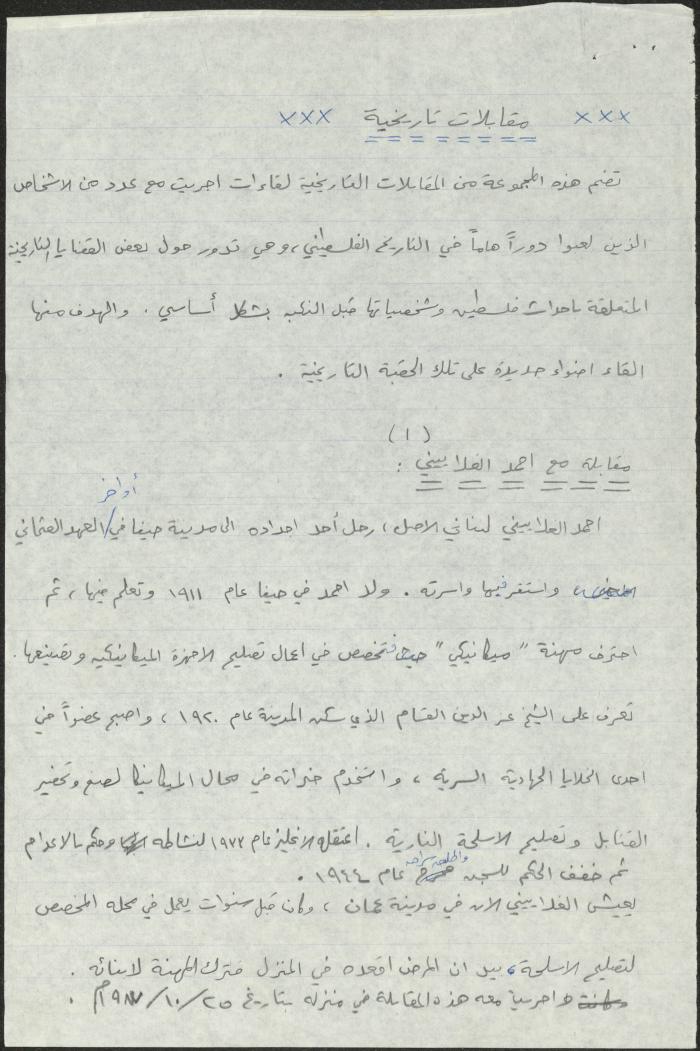 ××× مقابلات تاريخية ×××
تضم هذه المجموعة من المقابلات التاريخية لقاءات اجريت مع عدد من الاشخاص
الذين لعبوا دوراً هاماً في التاريخ الفلسطيني، وهي تدور حول بعض القضايا التاريخية
المتعلقة باحداث فلسطين وشخصياتها قبل النكبه بشكل أساسي . والهدف منها
القاء اضواء جديدة على تلك الحقبة التاريخية .
(١)
مقابلة مع احمد الغلاييني :
احمد الغلاييني لبناني الاصل، رحل أحد اجداده الى مدينة حيفا في / أواخر العهد العثماني
واستقر فيها واسرته . ولد احمد في حيفا عام ١٩١١ وتعلم فيها، ثم
احترف مهنة "ميكانيكي" فتخصص في اعمال تصليح الاجهزة الميكانيكيه وتصنيعها.
تعرف على الشيخ عز الدين القسام الذي سكن المدينة عام ١٩٢٠ ، واصبح عضواً في
احدى الخلايا الجهادية السرية ، واستخدم خبراته في مجال الميكانيكا لصنع وتحضير
القنابل وتصليح الاسلحة النارية . اعتقله الانجليز عام ١٩٣٢ لنشاطه وحكم بالاعدام
ثم خفف الحكم للسجن واطلق سراحه عام ١٩٤٤ .
يعيش الغلاييني الان في مدينة عمان ، وكان قبل سنوات يعمل في محله المخصص
لتصليح الاسلحة، بيد ان المرض اقعده في المنزل فترك المهنة لابنائه .
واجريت معه هذه المقابلة في منزله بتاريخ ٢٥/١٠/١٩٨٧م .